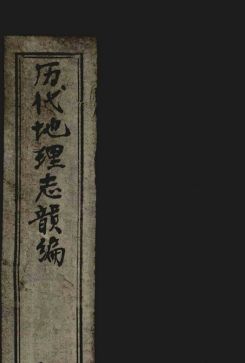 历代地理志韻编